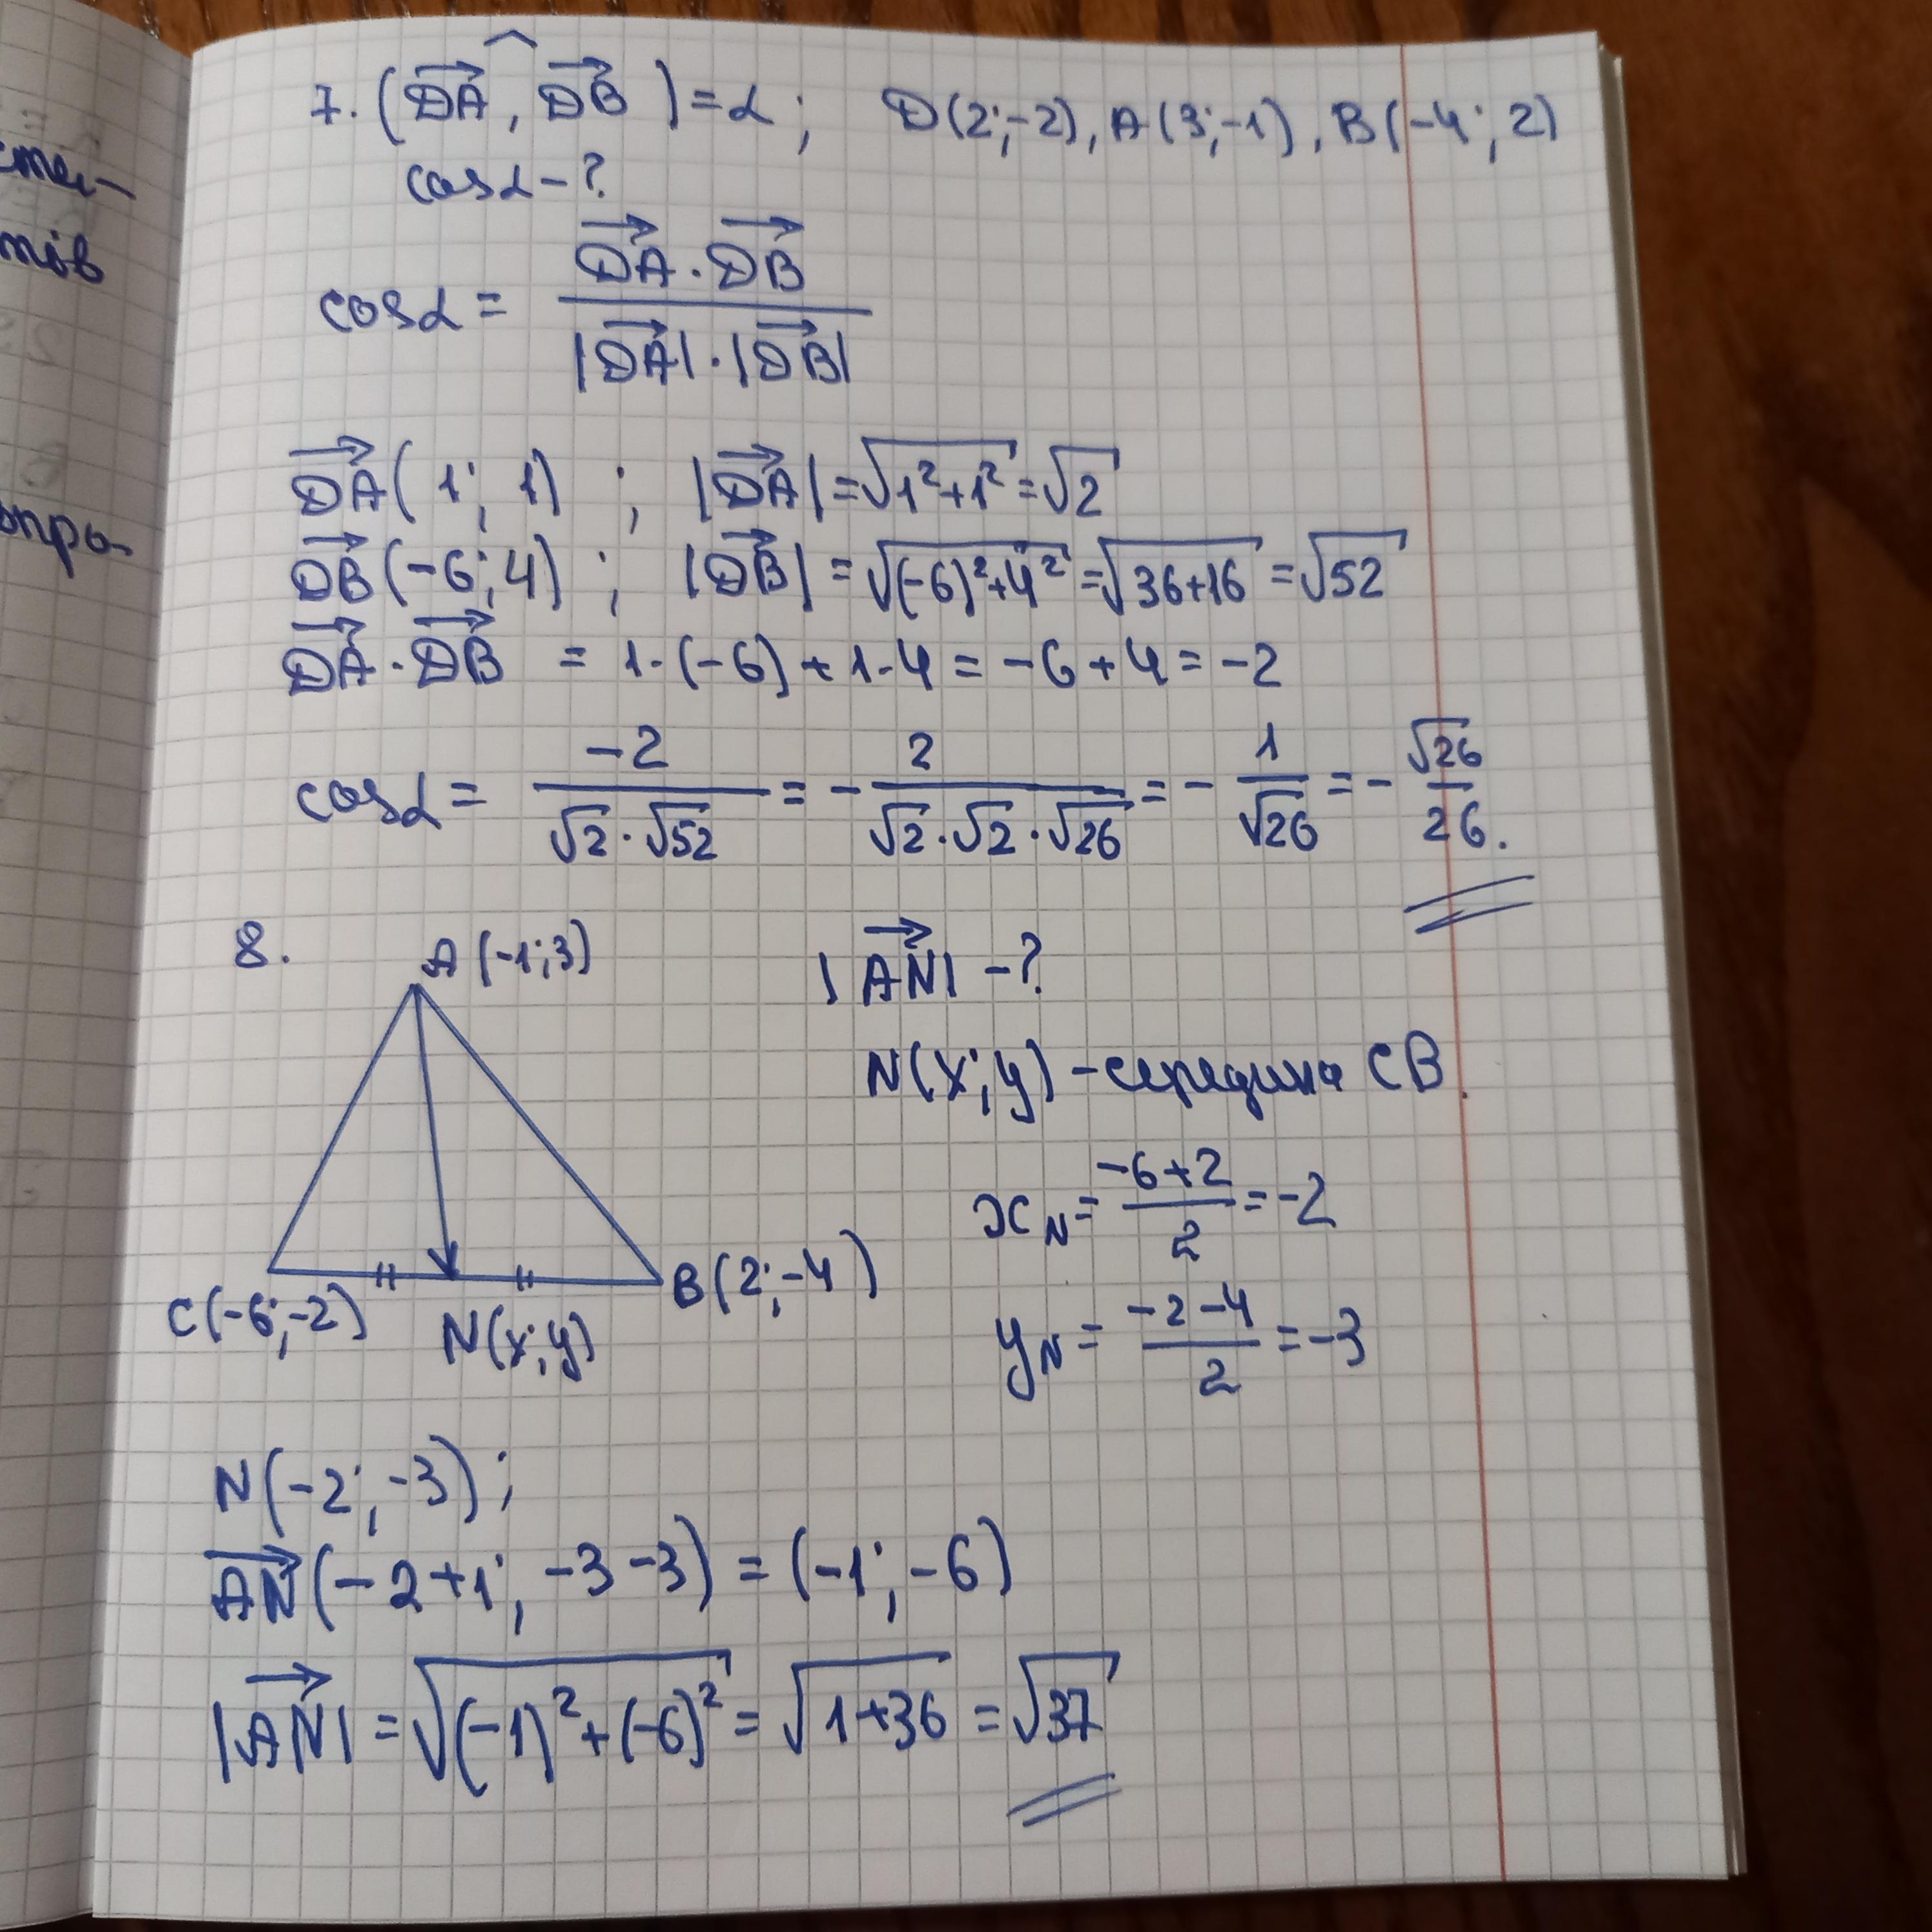 сте-
тів
опро-
7. (DA, DB) = α; D(2;-2), A(3;-1), B(-4;2)
cosα - ?
cosα = DA · DB / |DA| · |DB|
DA(1; 1) ; |DA| = √(1²+1²) = √2
DB(-6;4) ; |DB| = √((-6)²+4²) = √(36+16) = √52
DA · DB = 1·(-6) + 1·4 = -6 + 4 = -2
cosα = -2 / √2·√52 = - 2 / √2·√2·√26 = - 1/√26 = - √26/26.
8. A(-1;3) |AN| - ?
N(x;y) - середина CB.
x_N = (-6+2)/2 = -2
C(-6;-2) N(x;y) B(2;-4)
y_N = (-2-4)/2 = -3
N(-2;-3);
AN(-2+1; -3-3) = (-1;-6)
|AN| = √((-1)²+(-6)²) = √(1+36) = √37